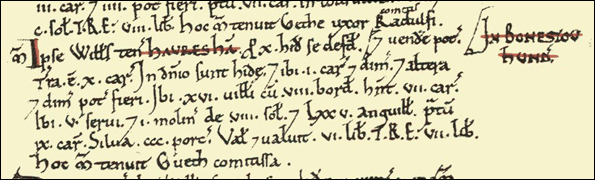 iii. car. 7 iiii. pot̃ fieri. p̃tũ. vii. car.
c. sol. T.R.E. viii. lib. Hoc m̃ tenuit Gethe uxor Radulfi. comitis
m̃ Ipse Witts ten HAVRESHĀ. x. hid se defd̃. In BONESTOV
tra. ē. x. car. In dñio sunt hidę. 7 ibi. i. car 7 dim. 7 altera HUND.
7 dim pot̃ fieri. Ibi. xvi. uitti cū viii. bord hñt. vii. car.
Ibi. v. serui. 7 i. molin de viii. sol. 7 Lxxv. anguill. p̃tū
ix car. Silua. ccc. porc. Val 7 ualuit. vi. lib. T.R.E. vii. lib.
Hoc m̃ tenuit Gueth comitissa.